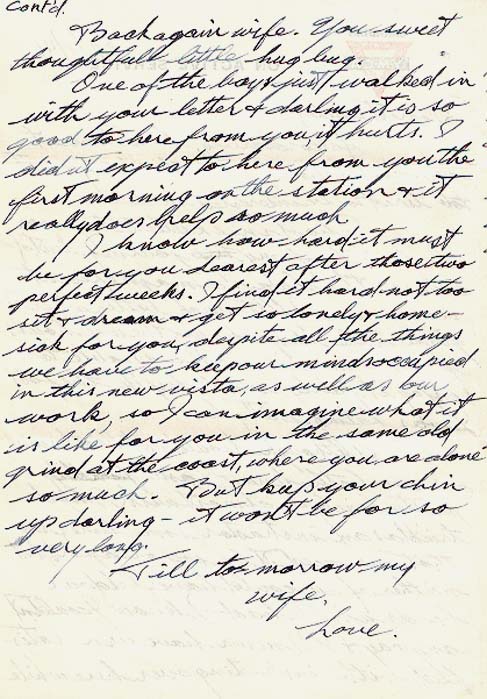 Cont'd.
Back again wife. You sweet
thoughtfull little hug bug.
One of the boys just walked in
with your letter & darling it is so
good to here from you, it hurts. I
did'nt expect to here from you the
first morning on the station & it
really does help so much
I know how hard it must
be for you dearest after those two
perfect weeks. I find it hard not too
sit & dream & get so lonely & home-
sick for you, depite all the things
we have to keep our minds occupied
in this new vista, as well as our
work, so I can imagine what it
is like for you in the same old
grind at the coast, where you are alone
so much. But keep your chin
up darling - it won't be for so
very long.
Till to-morrow my
wife,
Love.